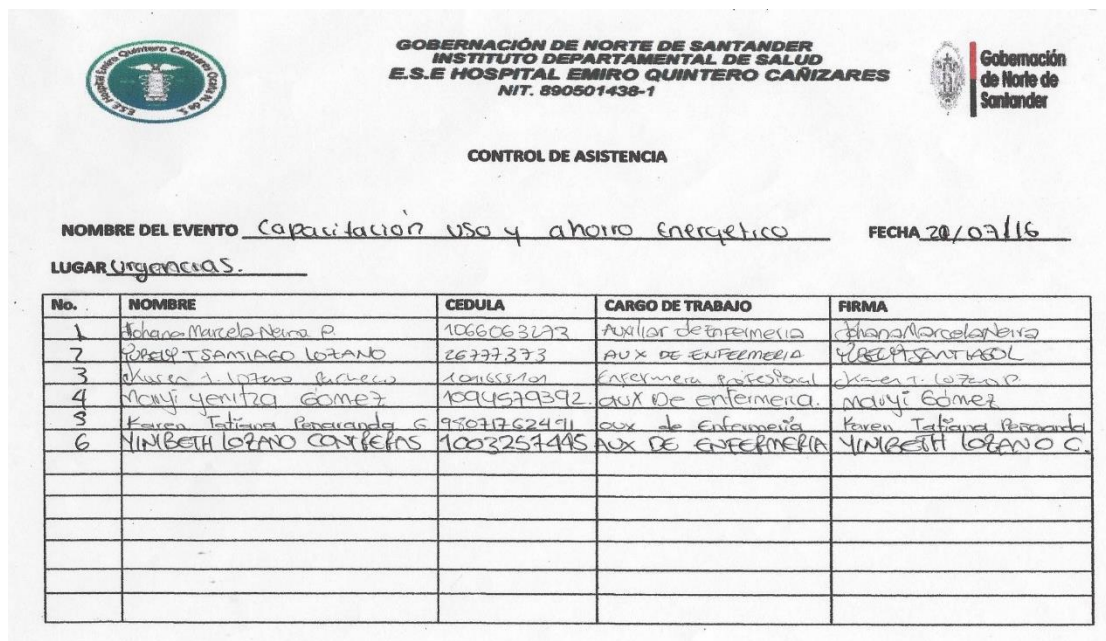 E.S.E Hospital Emiro Quintero Cañizares Ocaña N. de S.
GOBERNACIÓN DE NORTE DE SANTANDER
INSTITUTO DEPARTAMENTAL DE SALUD
E.S.E HOSPITAL EMIRO QUINTERO CAÑIZARES
NIT. 890501438-1
Gobernación
de Norte de
Santander
CONTROL DE ASISTENCIA
NOMBRE DEL EVENTO Capacitación uso y ahorro Energetico FECHA /07/16
LUGAR Urgencias.
No. NOMBRE CEDULA CARGO DE TRABAJO FIRMA
1 Johana Marcela Neira P. 1066063273 Auxiliar de Enfermeria Johana Marcela Neira
2 TSANTIAGO LOZANO 26777373 AUX DE ENFERMERIA
3 Karen J. Lozano Pacheco Enfermera profesional Karen J. Lozano P.
4 yenitza Gómez 1094579392. aux De enfermeria. Gómez
5 Karen Tatiana Penaranda G 98071762491 aux de Enfermeria Karen Tatiana Penaranda
6 YINIBETH LOZANO CONTRERAS 1003257445 AUX DE ENFERMERIA YINIBETH LOZANO C.